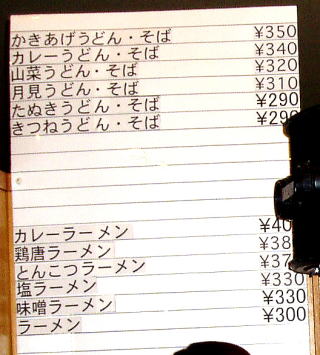 かきあげうどん・そば ¥350
カレーうどん・そば ¥340
山菜うどん・そば ¥320
月見うどん・そば ¥310
たぬきうどん・そば ¥290
きつねうどん・そば ¥290
カレーラーメン ¥40
鶏唐ラーメン ¥38
とんこつラーメン ¥37
塩ラーメン ¥330
味噌ラーメン ¥330
ラーメン ¥300